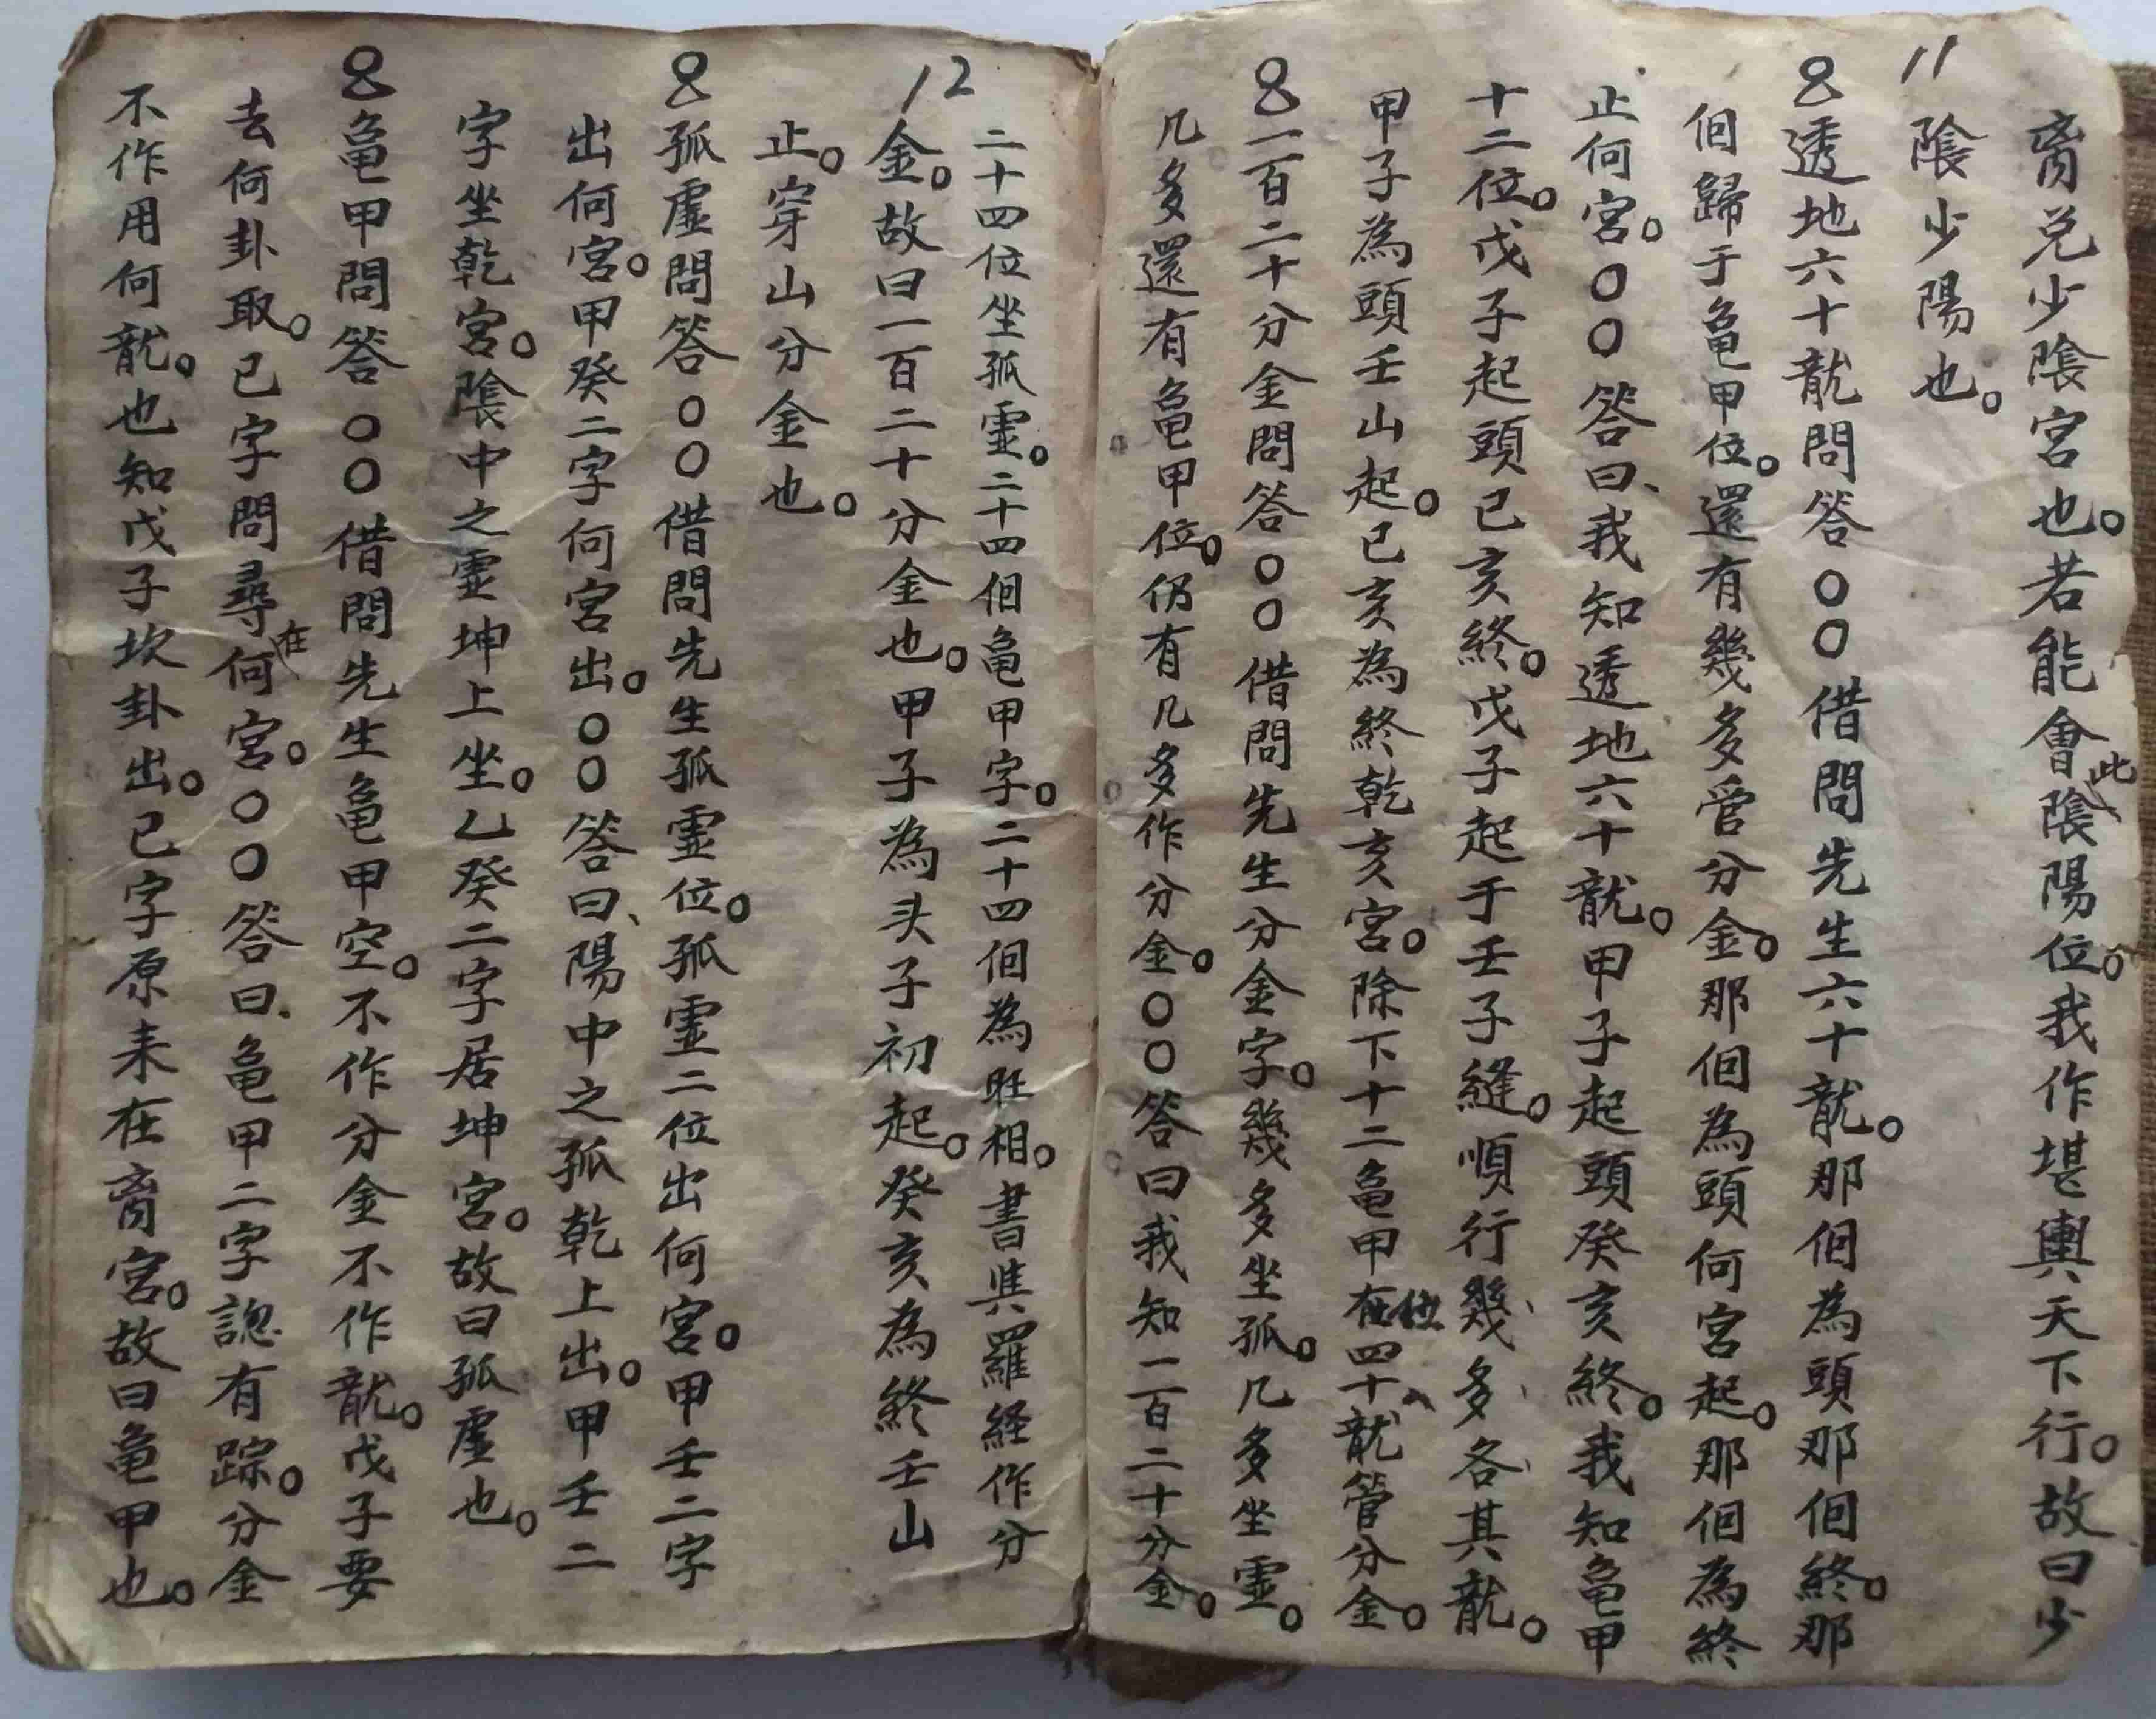 离兑少陰宮也。若能會此陰陽位。我作堪輿天下行。故曰少
11
陰少陽也。
透地六十龍問答○○借問先生六十龍。那個為頭那個終。那
個歸于龜甲位。還有幾多管分金。那個為頭何宮起。那個為終
止何宮。○○答曰、我知透地六十龍。甲子起頭癸亥終。我知龜甲
十二位。戊子起頭己亥終。戊子起于壬子縫。順行幾多各其龍。
甲子為頭壬山起。己亥為終乾亥宮。除下十二龜甲位四十八龍管分金。
一百二十分金問答○○借問先生分金字。幾多坐孤。几多坐虛。
几多還有龜甲位。仍有几多作分金。○○答曰我知一百二十分金。
二十四位坐孤虛。二十四個龜甲字。二十四個為旺相。書與羅經作分
12
金。故曰一百二十分金也。甲子為头子初起。癸亥為終壬山
止。穿山分金也。
孤虛問答○○借問先生孤虛位。孤虛二位出何宮。甲壬二字
出何宮。甲癸二字何宮出。○○答曰、陽中之孤乾上出。甲壬二
字坐乾宮。陰中之虛坤上坐。乙癸二字居坤宮。故曰孤虛也。
龜甲問答○○借問先生龜甲空。不作分金不作龍。戊子要
去何卦取。已字問尋在何宮。○○答曰、龜甲二字認有踪。分金
不作用何龍。也知戊子坎卦出。已字原来在离宮。故曰龜甲也。